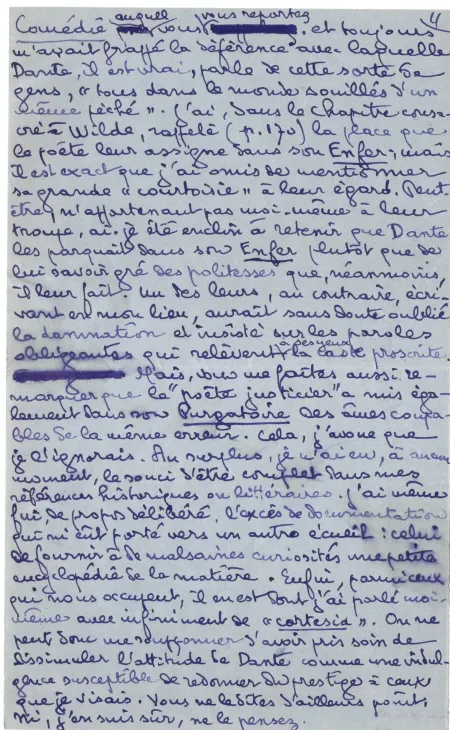 4
auquel vous reportez
Comédie vous, et toujours
m'avait frappé la déférence avec laquelle
Dante, il est vrai, parle de cette sorte de
gens, « tous dans le monde souillés d'un
même péché ». J'ai, dans le chapitre consa-
cré à Wilde, rappelé (p. 170) la place que
le poète leur assigne dans son Enfer; mais
il est exact que j'ai omis de mentionner
sa grande « courtoisie » à leur égard. Peut
être, n'appartenant pas moi-même à leur
troupe, ai-je été enclin à retenir que Dante
les parquait dans son Enfer plutôt que de
lui savoir gré des politesses que, néanmoins,
il leur fait. Un des leurs, au contraire, écri-
vant en mon lieu, aurait sans doute oublié
la damnation et insisté sur les paroles
à ses yeux
obligeantes qui relèvent la caste proscrite.
Mais, vous me faîtes aussi re-
marquer que le "poète justicier" a mis éga-
lement dans son Purgatoire des âmes coupa-
bles de la même erreur. Cela, j'avoue que
je l'ignorais. Au surplus, je n'ai eu, à aucun
moment, le souci d'être complet dans mes
références historiques ou littéraires. J'ai même
fui, de propos délibéré, l'excès de documentation
qui m'eût porté vers un autre écueil : celui
de fournir à de malsaines curiosités une petite
encyclopédie de la matière. Enfin, parmi ceux
qui nous occupent, il en est dont j'ai parlé moi-
même avec infiniment de « cortesia ». On ne
peut donc me soupçonner d'avoir pris soin de
dissimuler l'attitude de Dante comme une indul-
gence susceptible de redonner du prestige à ceux
que je visais. Vous ne le dîtes d'ailleurs point,
ni, j'en suis sûr, ne le pensez.